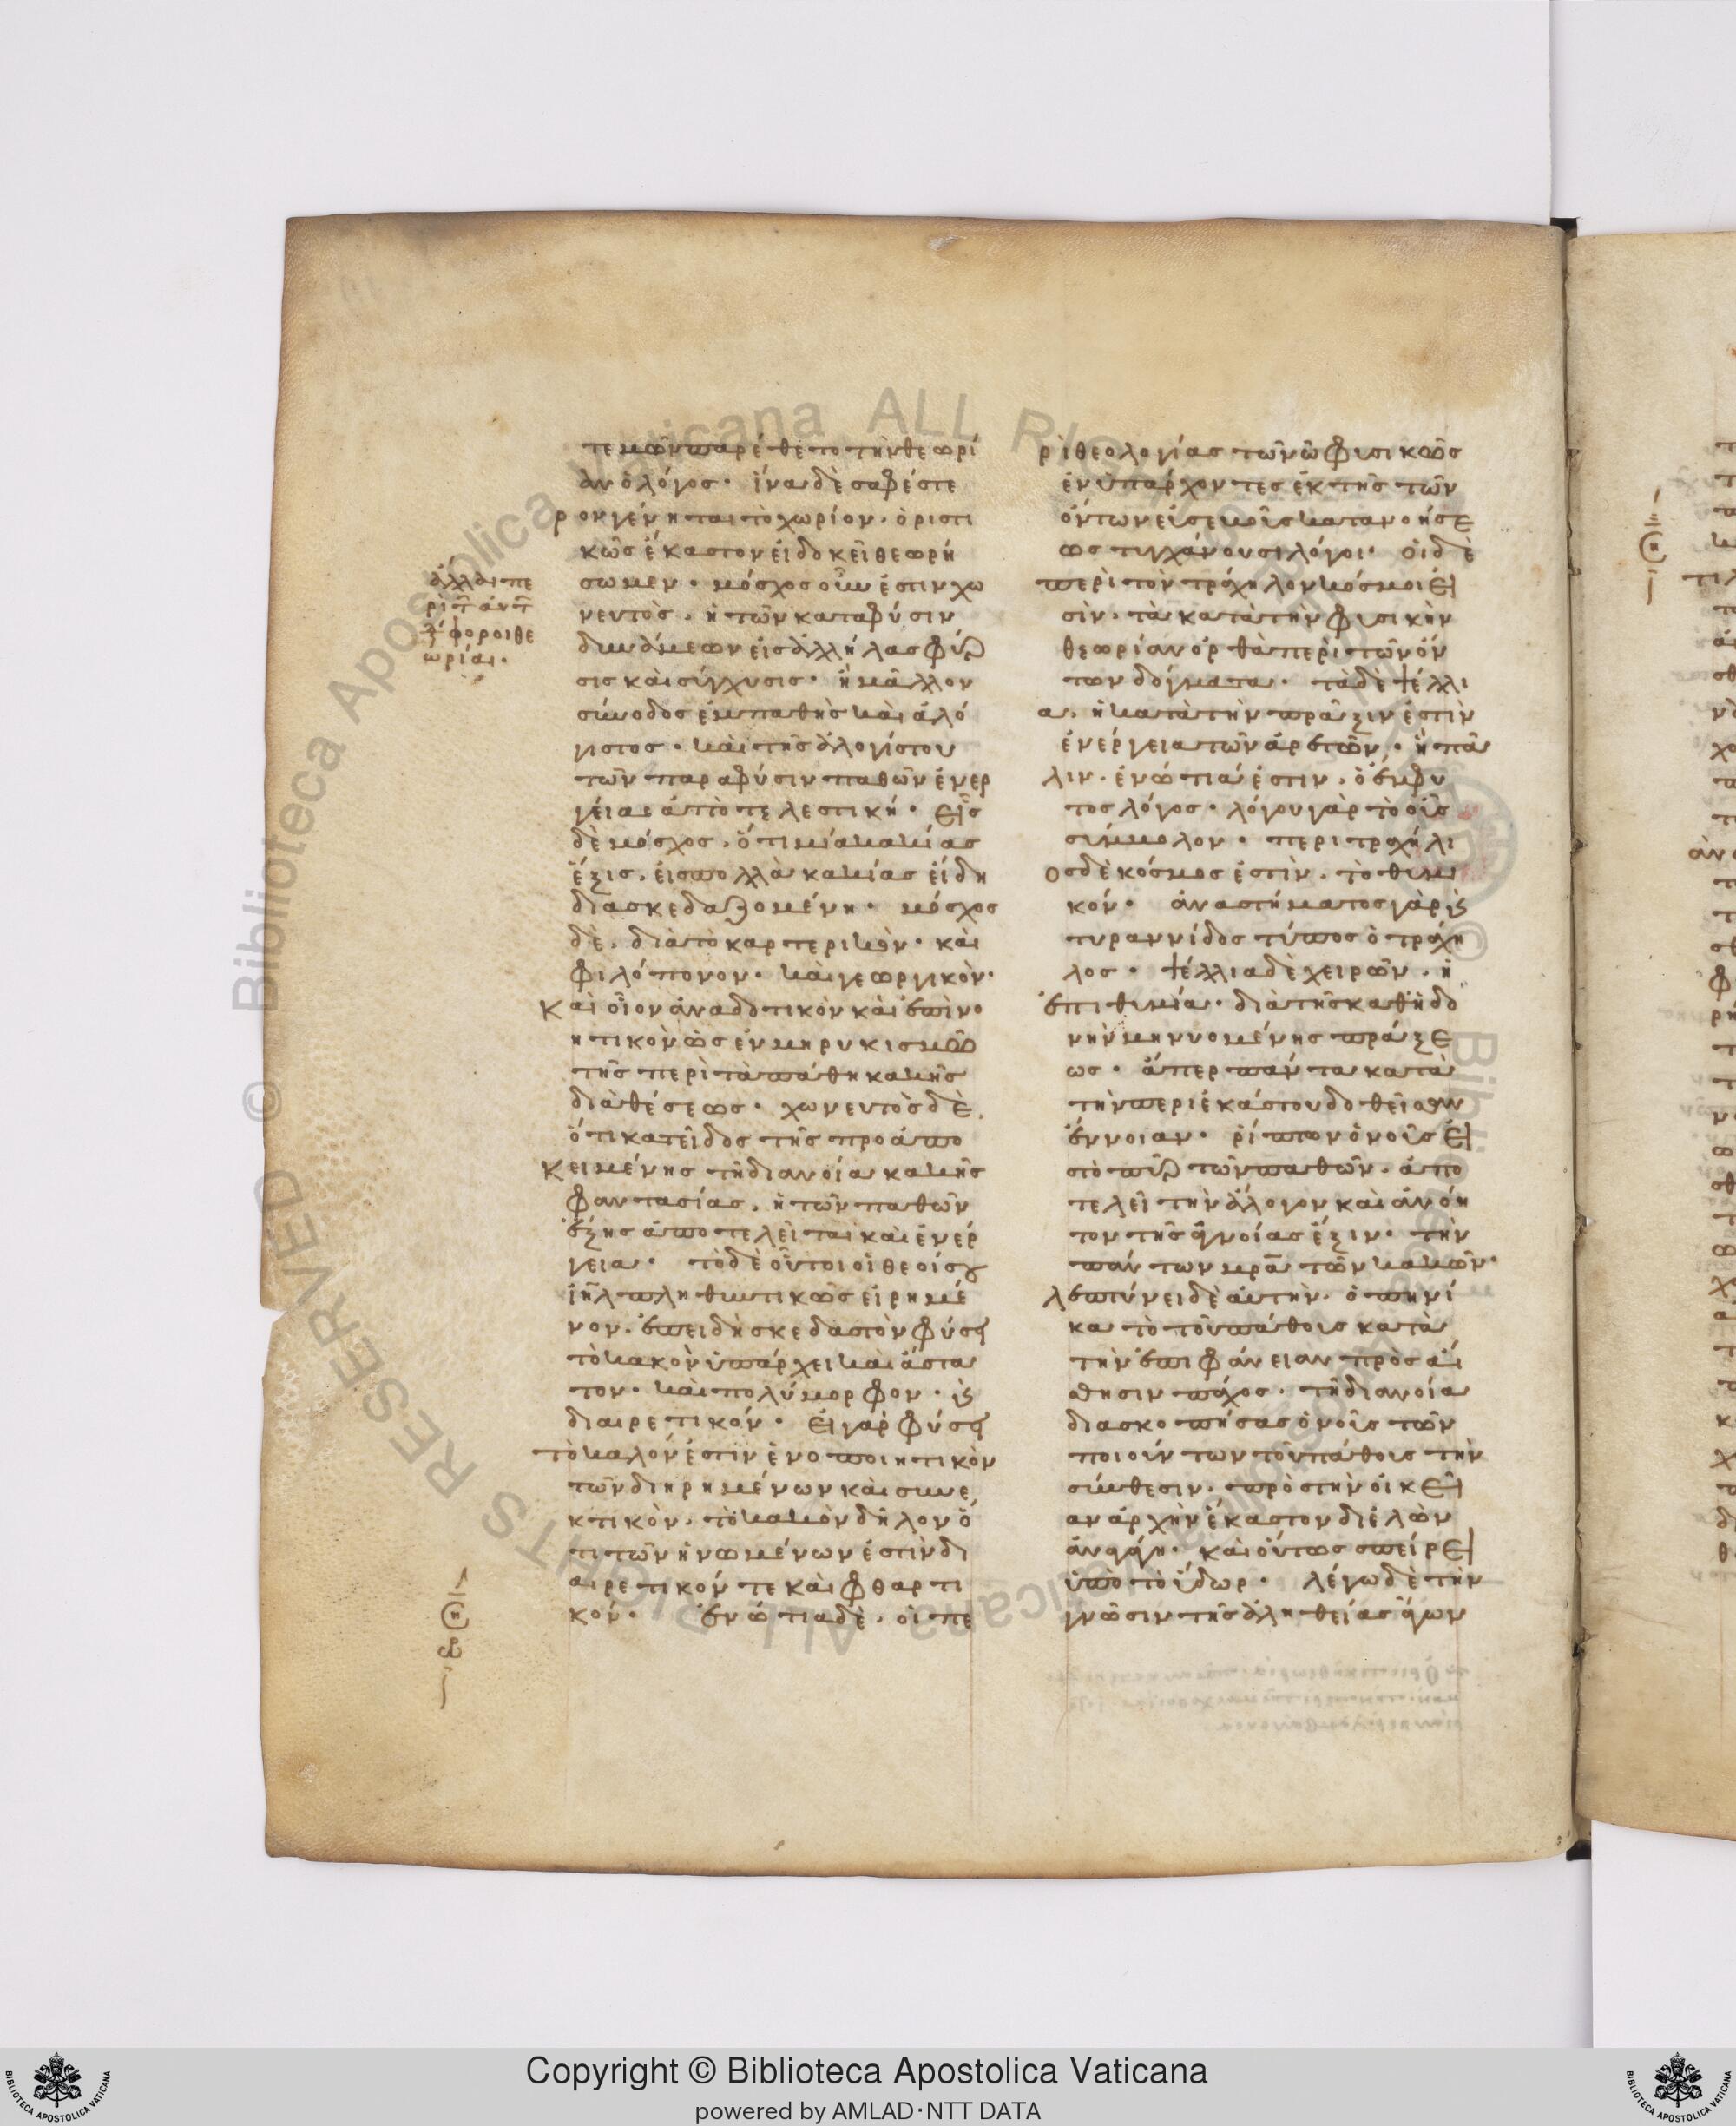 τεμῶν παρέθετο τὴν θεωρί
αν ὁ λόγος· ἵνα δὲ σαφέστε
ρον γένηται τὸ χωρίον, ὁριστι
κῶς ἕκαστον εἰ δοκεῖ θεωρή
σωμεν· μόσχος οὖν ἐστιν χω
νευτὸς, ἡ τῶν κατα φύσιν
δυνάμεων εἰς ἀλλήλας φύρ
σις καὶ σύγχυσις· ἢ μᾶλλον
σύνοδος ἐμπαθὴς καὶ ἀλό
γιστος· καὶ τῆς ἀλογίστου
τῶν παρα φύσιν παθῶν ἐνερ
γείας ἀποτελεστική· εἷς
δὲ μόσχος, ὅτι μία κακίας
ἕξις, εἰς πολλὰ κακίας εἴδη
διασκεδαζομένη· μόσχος
δὲ, διὰ τὸ καρτερικὸν· καὶ
φιλόπονον· καὶ γεωργικὸν·
καὶ οἷον ἀναδοτικὸν καὶ ἐπινο
ητικὸν ὡς ἐν μηρυκισμῶ
τῆς περὶ τὰ πάθη κακῆς
διαθέσεως· χωνευτὸς δὲ,
ὅτι κατεῖδος τῆς προαπο
κειμένης τῆ διανοία κακῆς
φαντασίας, ἡ τῶν παθῶν
ἕξης ἀποτελεῖται καὶ ἐνέρ
γεια· τὸ δὲ οὗτοι οἱ θεοί σου
ἰηλ πληθυντικῶς εἰρημέ
νον, ἐπειδὴ σκεδαστὸν φύσει
τὸ κακὸν ὑπάρχει καὶ ἄστα
τον· καὶ πολύμορφον· καὶ
διαιρετικόν· εἰ γὰρ φύσει
τὸ καλόν ἐστιν ἑνοποιητικὸν
τῶν διηρημένων καὶ συνε
κτικὸν, τὸ κακὸν δῆλον ὅ
τι τῶν ἡνωμένων ἐστὶν δι
αιρετικόν τε καὶ φθαρτι
κόν· ἐνώτια δὲ, οἱ πε
ἄλλαι πε
ρὶ τ ἀυτ
διάφοροι θε
ωρίαι·
ρὶ θεολογίας τῶ νῶ φυσικῶς
ἐνυπάρχοντες ἐκ τῆς τῶν
ὄντων εὐσεβοῦς κατανοήσε
ως τυγχάνουσι λόγοι· οἱ δὲ
περὶ τὸν τράχηλον κόσμοι εἰ
σὶν, τὰ κατὰ τὴν φυσικὴν
θεωρίαν ὀρθὰ περὶ τῶν ὄν
των δόγματα· τὰ δὲ ψέλλι
α, ἡ κατὰ τὴν πρᾶξιν ἐστὶν
ἐνέργεια τῶν ἀρετῶν· ἢ πά
λιν, ἐνώτια ἐστιν, ὁ ἔμφυ
τος λόγος· λόγου γὰρ τὸ οὖς
σύμβολον· περιτραχήλι
ος δὲ κόσμος ἐστὶν, τὸ θυμι
κόν· ἀναστήματος γὰρ καὶ
τυραννίδος τύπος ὁ τράχη
λος· ψέλλια δὲ χειρῶν, ἡ
ἐπιθυμία· διὰ τῆς καθηδο
νὴν μηνυομένης πράξε
ως· ἅπερ πάντα κατὰ
τὴν περὶ ἑκάστου δοθεῖσαν
ἔννοιαν· ῥίπτων ὁ νοῦς εἰ
στὸ πῦρ τῶν παθῶν, ἀπο
τελεῖ τὴν ἄλογον καὶ ἀνόη
τον τῆς ἀγνοίας ἕξιν· τὴν
πάντων μρα τῶν κακῶν·
λεπτύνει δὲ αὐτὴν, ὁ πηνί
κα τὸ τοῦ πάθους κατὰ
τὴν ἐπιφάνειαν πρὸς αἴ
σθησιν πάχος, τῆ διανοία
διασκοπήσας ὁ νοῦς τῶν
ποιούντων τοῦ πάθους τὴν
σύνθεσιν, πρὸς τὴν οἰκεί
αν ἀρχὴν ἕκαστον διελὼν
ἀναγάγη· καὶ οὕτως σπείρει
ὑπὸ τὸ ὕδωρ· λέγω δὲ τὴν
γνῶσιν τῆς ἀληθείας ἄγων
Copyright © Biblioteca Apostolica Vaticana
powered by AMLAD·NTT DATA